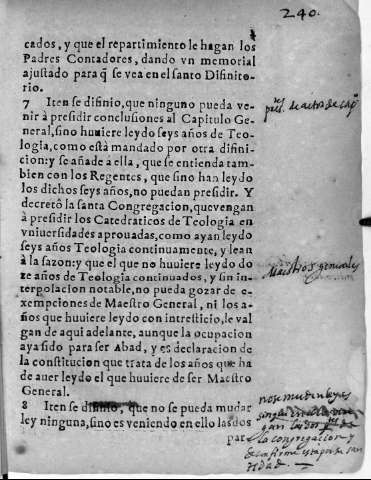 240.
cados, y que el repartimiento le hagan los
Padres Contadores, dando vn memorial
ajustado para q̃ se vea en el santo Difinito-
rio.
7 Iten se difinio, que ninguno pueda ve-
nir à presidir conclusiones al Capitulo Ge-
neral, sino huuiere leydo seys años de Teo-
logia, como està mandado por otra difini-
cion: y se añade à ella, que se entienda tam-
bien con los Regentes, que sino han leydo
los dichos seys años, no puedan presidir. Y
decretò la santa Congregacion, que vengan
à presidir los Catedraticos de Teologia en
vniuersidades aprouadas, como ayan leydo
seys años Teologia continuamente, y lean
à la sazon: y que el que no huuiere leydo do
ze años de Teologia continuados, y sin in-
terpolacion notable, no pueda gozar de e-
xempciones de Maestro General, ni los a-
ños que huuiere leydo con intresticio, le val
gan de aqui adelante, aunque la ocupacion
aya sido para ser Abad, y es declaracion de
la constitucion que trata de los años que ha
de auer leydo el que huuiere de ser Maestro
General.
8 Iten se difinio, que no se pueda mudar
ley ninguna, sino es veniendo en ello las dos
par
de actos de
Maestros generales
no se muden leyes
la congregacion y